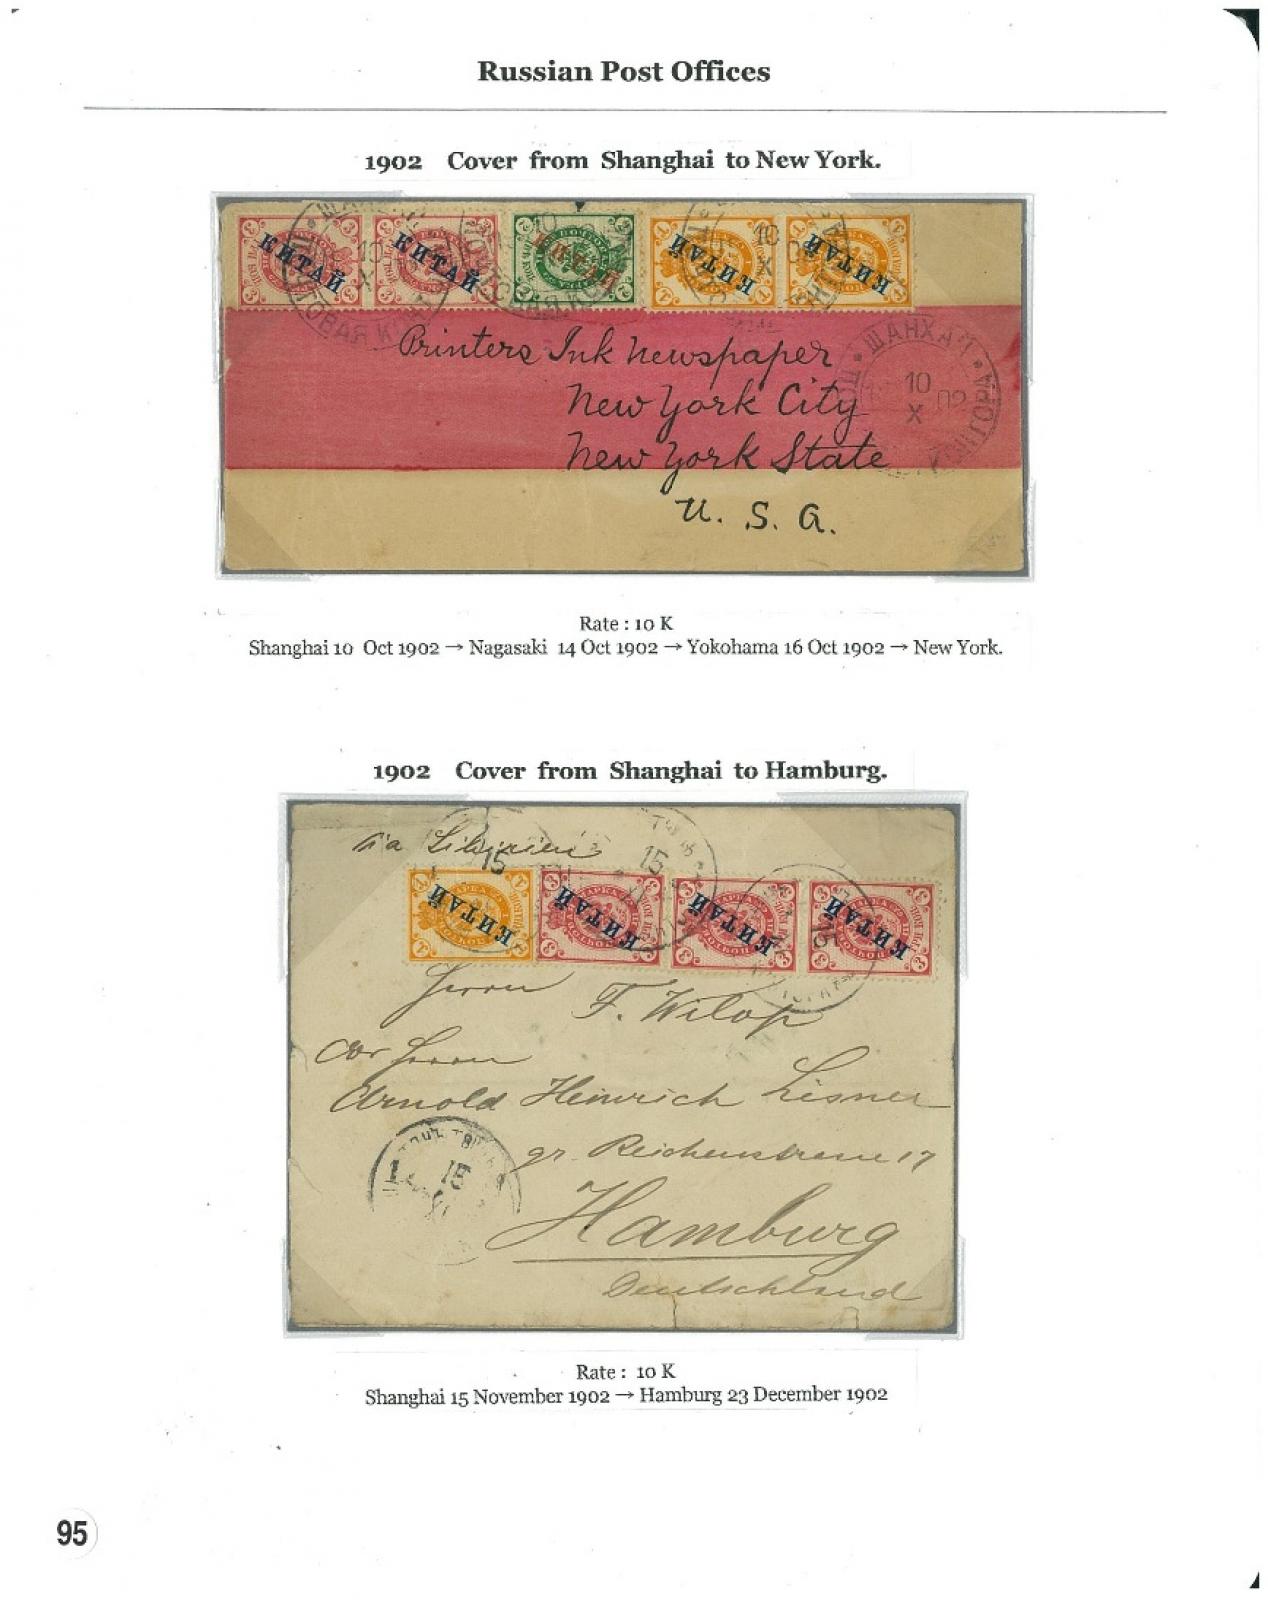 Russian Post Offices
1902 Cover from Shanghai to New York.
КИТАЙ КИТАЙ КИТАЙ КИТАЙ КИТАЙ
Printers Ink Newspaper
New York City
New York State
U. S. A.
ШАНХАЙ
10
X 02
КОНТОРА
Rate : 10 K
Shanghai 10 Oct 1902 → Nagasaki 14 Oct 1902 → Yokohama 16 Oct 1902 → New York.
1902 Cover from Shanghai to Hamburg.
via Sibirien
15 15
КИТАЙ КИТАЙ КИТАЙ КИТАЙ
15
Herrn F. Wilop
Herrn
Arnold Heinrich Lisner
gr. Reichenstrasse 17
15
Hamburg
Deutschland
Rate : 10 K
Shanghai 15 November 1902 → Hamburg 23 December 1902
95